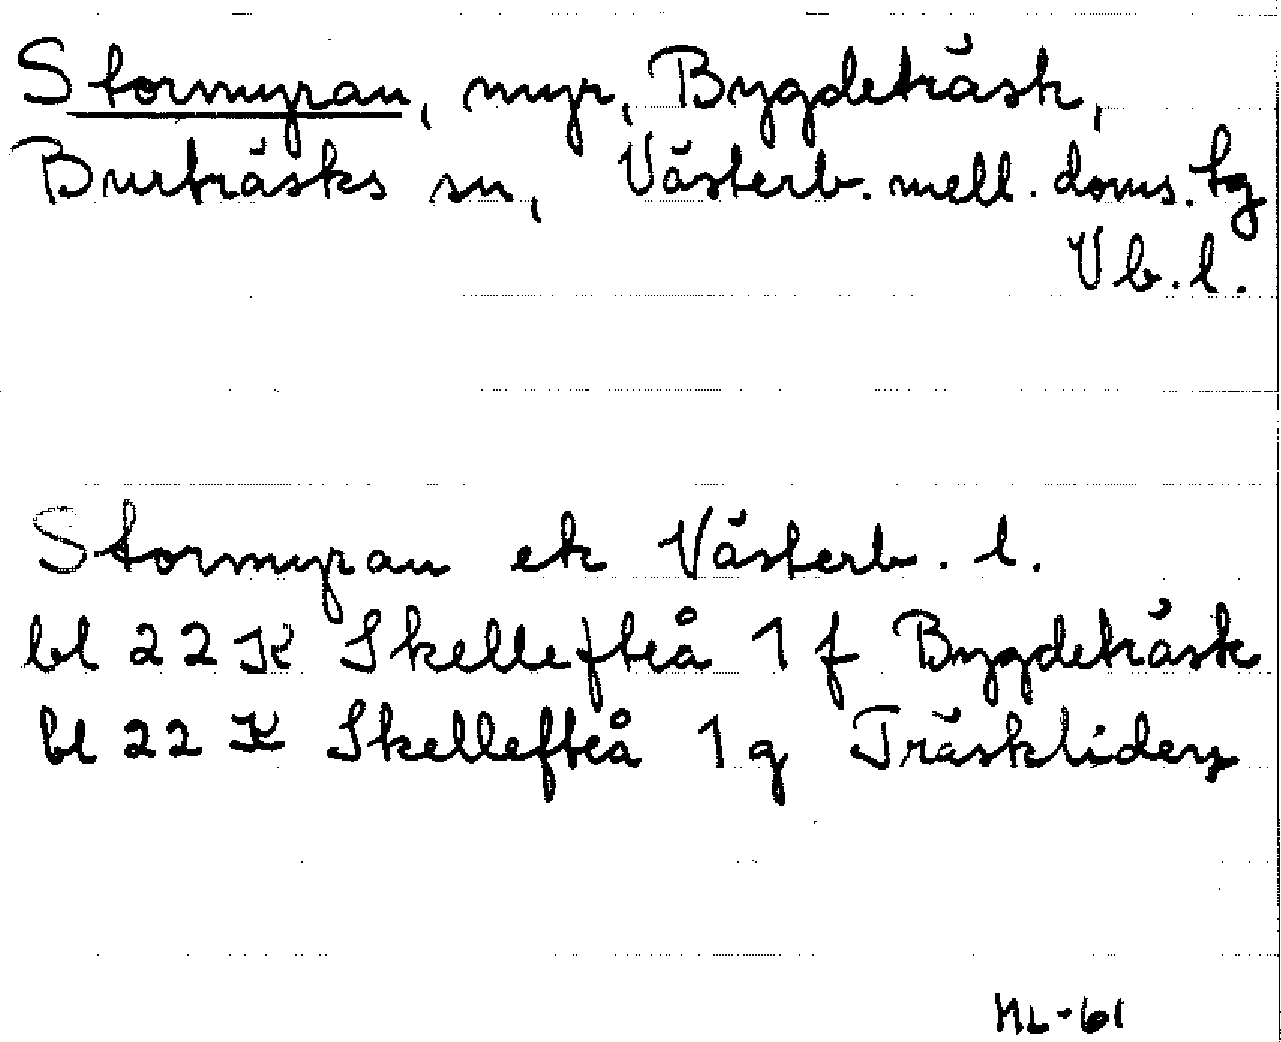 Stormyran, myr, Bygdeträsk,
Burträsks sn, Västerb. mell. doms. tg
Vb. l.
Stormyran ek Västerb. l.
bl 22 K Skellefteå 1 f Bygdeträsk
bl 22 K Skellefteå 1 g Träskliden
ML-61